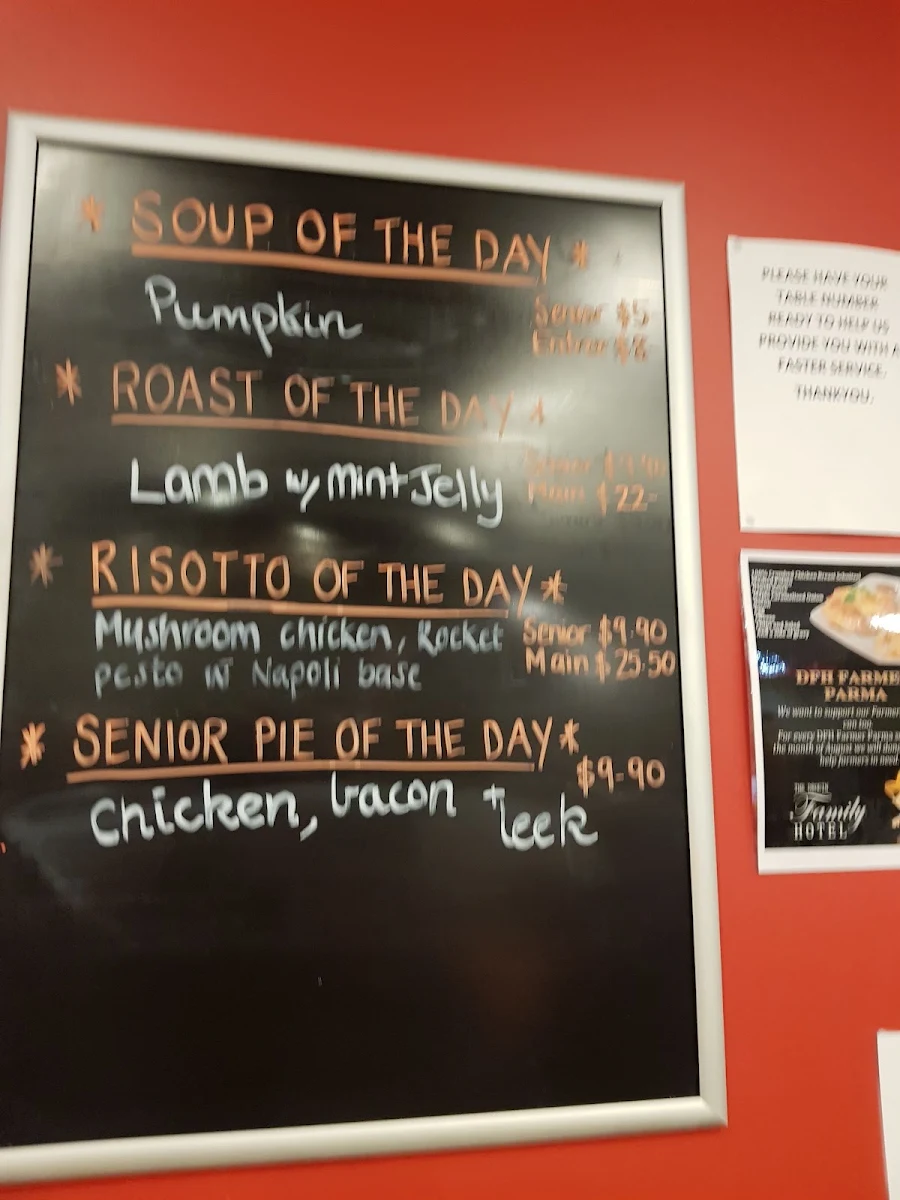 * SOUP OF THE DAY *
Pumpkin
Senior $5
Entree $8
* ROAST OF THE DAY *
Lamb w/ Mint Jelly
Senior
Main $22-
* RISOTTO OF THE DAY *
Mushroom chicken, Rocket
pesto w Napoli base
Senior $9.90
Main $25.50
* SENIOR PIE OF THE DAY *
$9-90
Chicken, bacon + leek
PLEASE HAVE YOUR
TABLE NUMBER
READY TO HELP US
PROVIDE YOU WITH A
FASTER SERVICE.
THANKYOU.
DFH FARME
PARMA
We want to support our Farmer
For every DFH Farmer Parma
the month of August we will
help farmers in need
Family
HOTEL